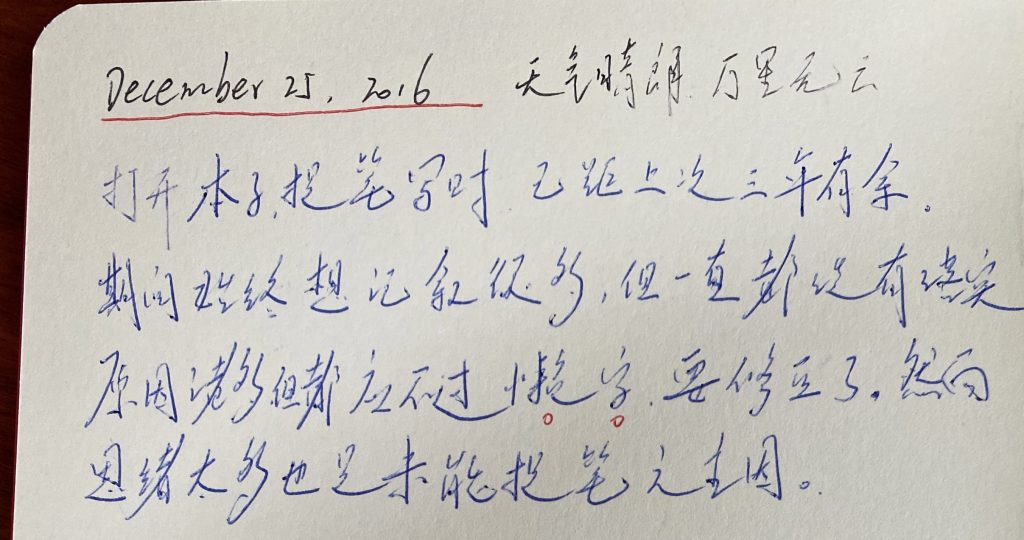 December 25, 2016 天气晴朗.万里无云
打开本子,提笔写时 已距上次三年有余。
期间始终想记叙很多,但一直都没有落实
原因诸多但都应不过懒字.要修正了。然而
思绪太多也是未能提笔之主因。